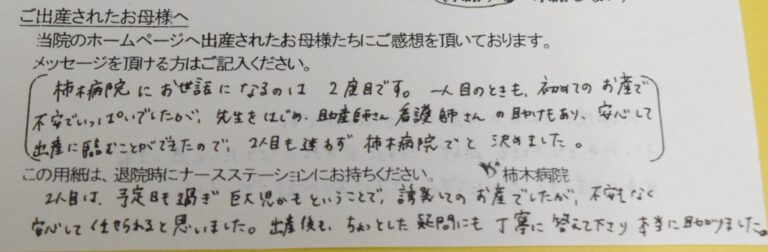 ご出産されたお母様へ
当院のホームページへ出産されたお母様たちにご感想を頂いております。
メッセージを頂ける方はご記入ください。
柿木病院にお世話になるのは 2度目です。一人目のときも、初めてのお産で
不安でいっぱいでしたが、先生をはじめ、助産師さん 看護師さんの助けもあり、安心して
出産に臨むことができたので、2人目も迷わず 柿木病院でと 決めました。
この用紙は、退院時にナースステーションにお持ちください。 柿木病院
2人目は、予定日も過ぎ 巨大児かもということで、誘発してのお産でしたが、不安もなく
安心して 任せられると思いました。出産後も、ちょっとした 疑問にも 丁寧に 答えて下さり 本当に助かりました。